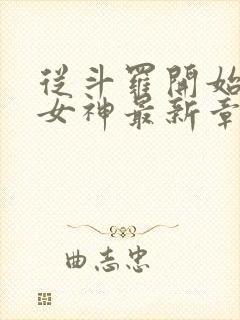 从斗罗開始
女神最新章
曲志忠